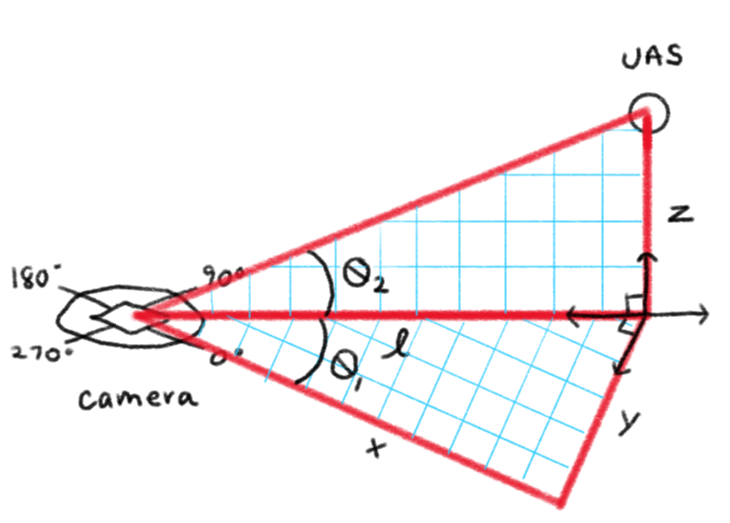 UAS
z
180°
90°
θ₂
270°
0°
l
θ₁
camera
x
y